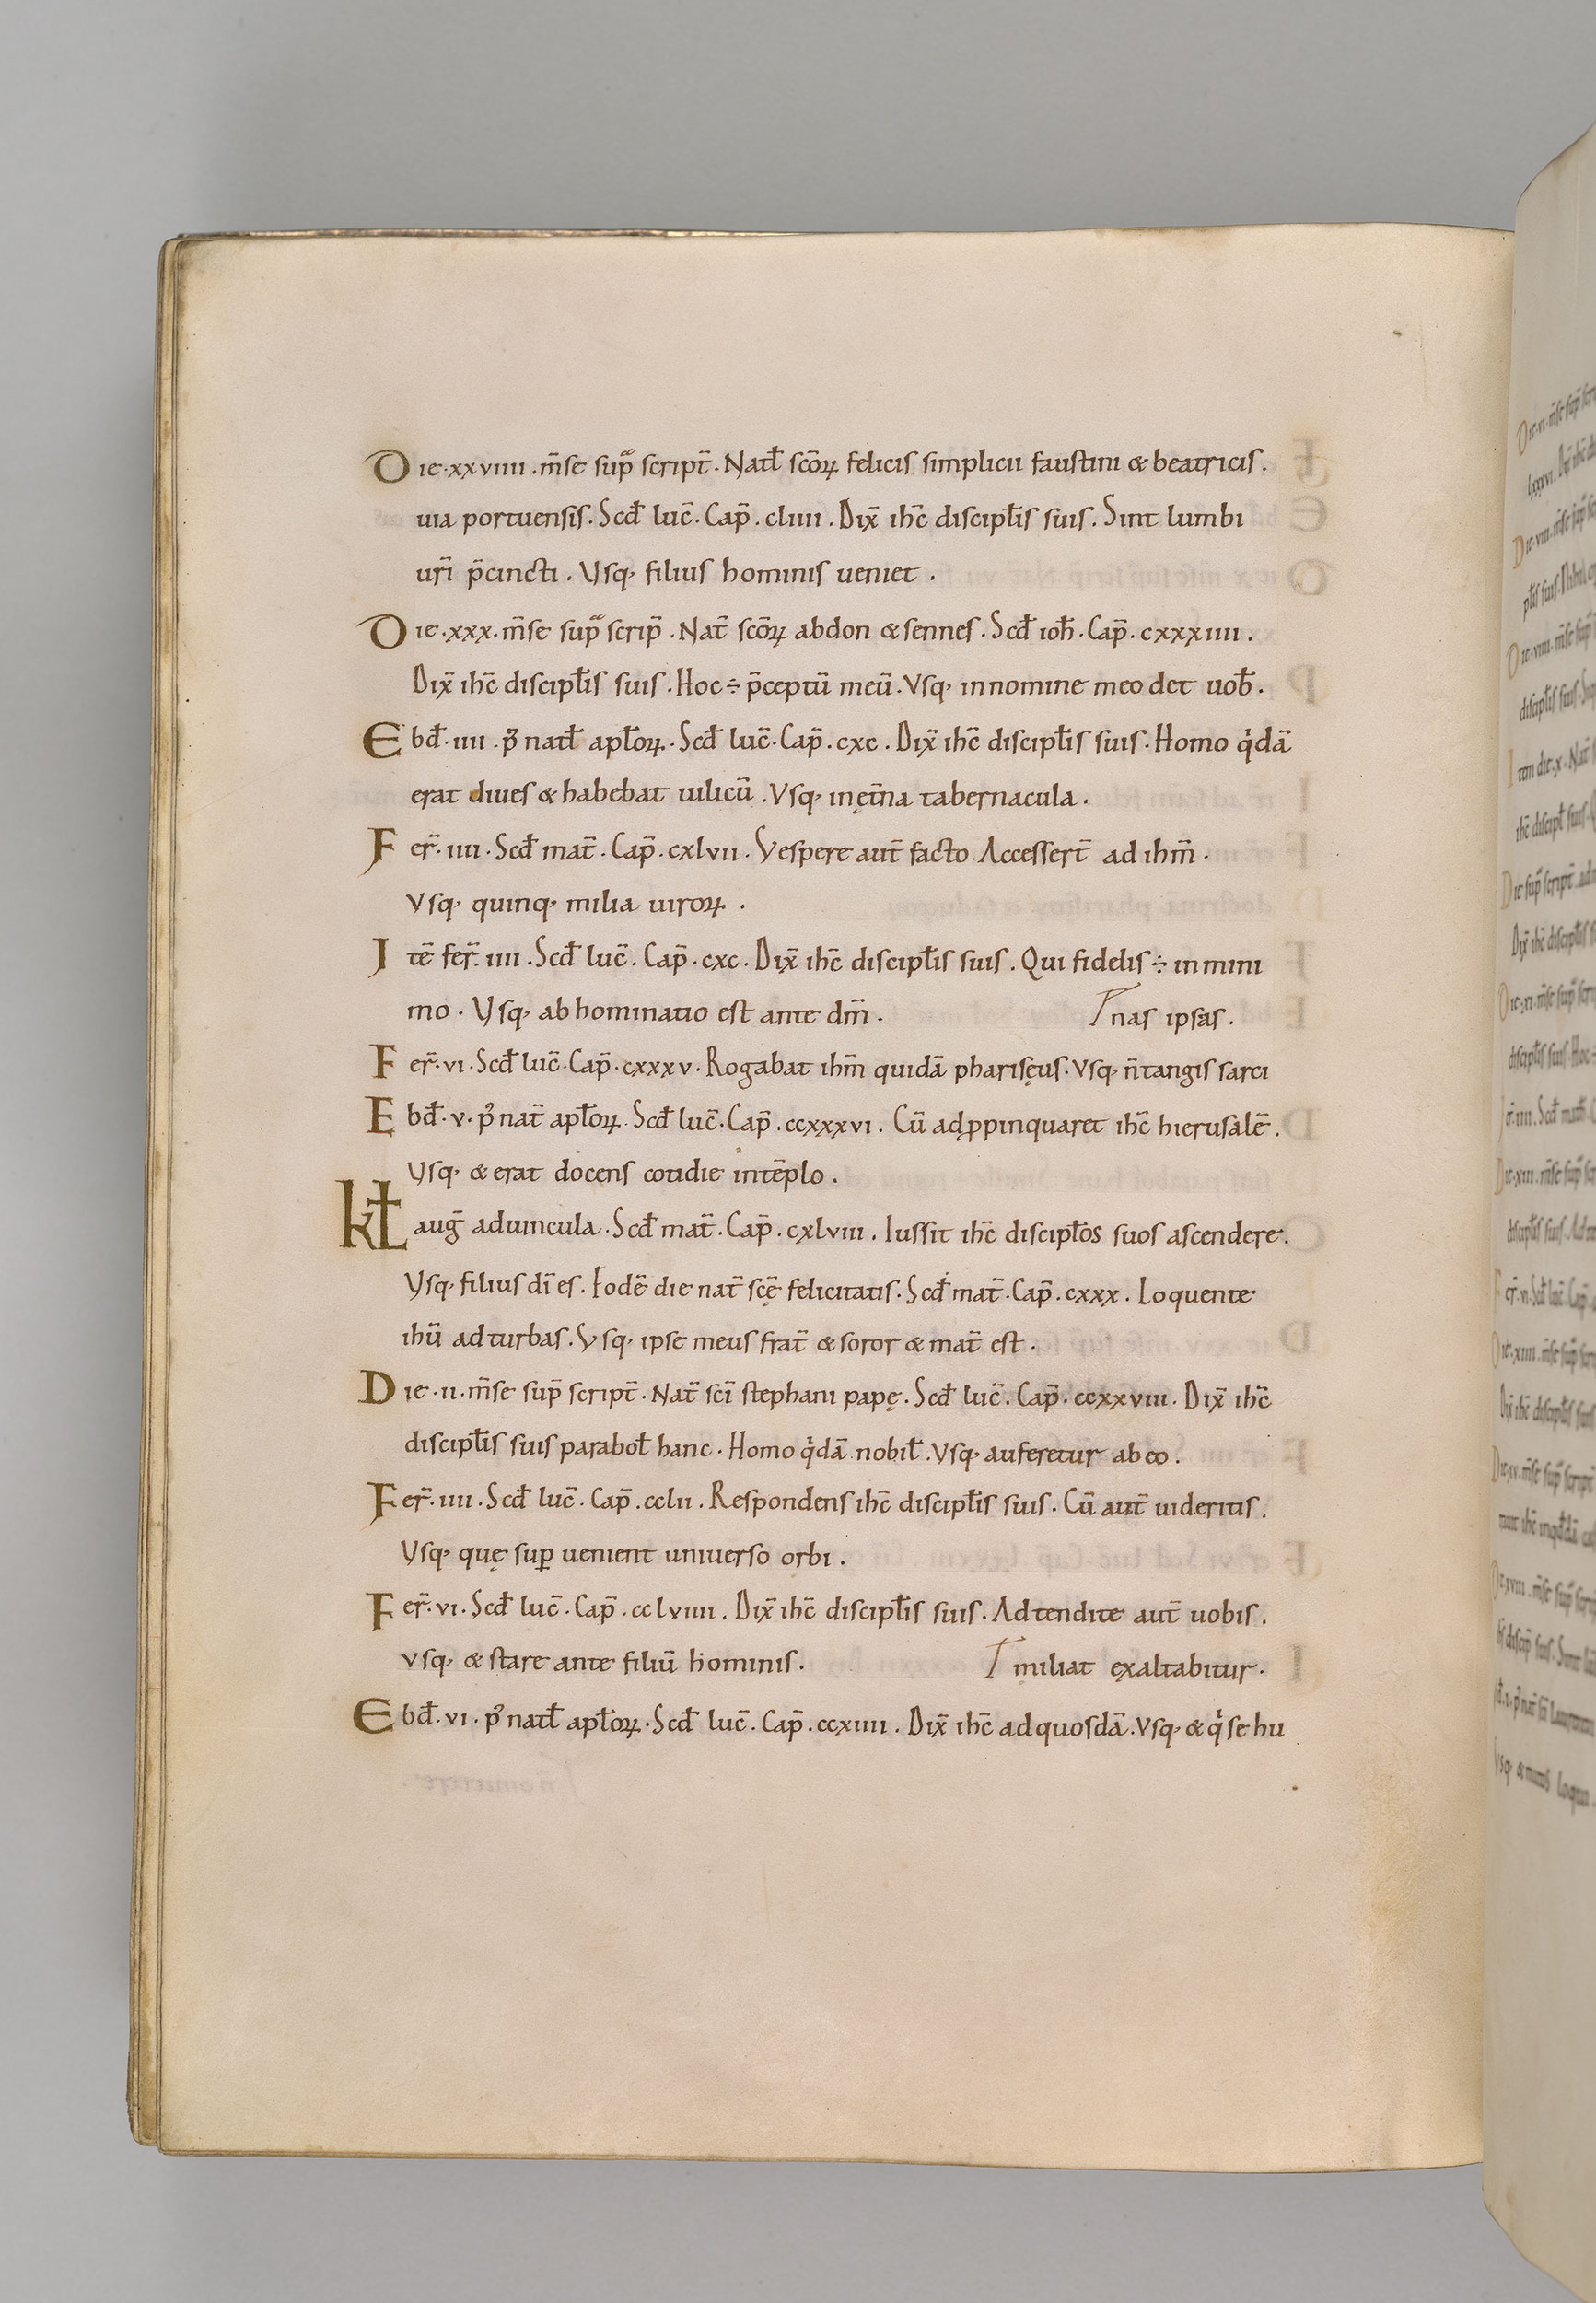 Die·xxviiii·m̄se sup͛ script̄·Natł sc̄oꝝ felicis simplicii faustini & beatricis.
uia portuensis·Scđ luc̄·Cap̄·cliiii·Dix̄ ihc̄ discipłis suis. Sint lumbi
ur̄i p̄cincti. Vsq; filius hominis ueniet.
Die·xxx·m̄se sup͛ scrip̄·Nat̄ sc̄oꝝ abdon & sennes·Scđ ioħ·Cap̄·cxxxiiii.
Dix̄ ihc̄ discipłis suis·Hoc ÷ p̄ceptū meū·Vsq; innomine meo det uob̄.
Ebđ·iiii·p᷒ natł apłoꝝ·Scđ luc̄·Cap̄·cxc·Dix̄ ihc̄ discipłis suis·Homo qͥdā
erat diues & habebat uilicū·Vsq; inęt̄na tabernacula.
Fer̄·iiii·Scđ mat̄·Cap̄·cxlvii·Vespere aut̄ facto. Accessert̄ ad ihm̄.
Vsq; quinq; milia uiroꝝ.
Itē fer̄·iiii·Scđ luc̄·Cap̄·cxc·Dix̄ ihc̄ discipłis suis. Qui fidelis ÷ in mini
mo·Vsq; abhominatio est ante dm̄. nas ipsas.
Fer̄·vi·Scđ luc̄·Cap̄·cxxxv·Rogabat ihm̄ quidā pharisęus·Vsq; n̄ tangis sarci
Ebđ·v·p᷒ nat̄ apłoꝝ·Scđ luc̄·Cap̄·ccxxxvi. Cū adꝓpinquaret ihc̄ hierusalē.
Vsq; & erat docens cotidie intēplo.
kł auḡ aduincula·Scđ mat̄·Cap̄·cxlviii. Iussit ihc̄ discipłos suos ascendere.
Vsq; filius dī es. Eodē die nat̄ scę̄ felicitatis·Scđ mat̄·Cap̄·cxxx. Loquente
ihū adturbas. Vsq; ipse meus frat̄ & soror & mat̄ est.
Die·ii·m̄se sup̄ script̄·Nat̄ scī stephani papę·Scđ luc̄·Cap̄·ccxxviii·Dix̄ ihc̄
discipłis suis paraboł hanc·Homo qͥdā nobił·Vsq; auferetur abeo.
Fer̄·iiii·Scđ luc̄·Cap̄·cclii. Respondens ihc̄ discipłis suis. Cū aut̄ uideritis.
Vsq; quę suꝑ uenient uniuerso orbi.
Fer̄·vi·Scđ luc̄·Cap̄·cclviiii. Dix̄ ihc̄ discipłis suis. Adtendite aut̄ uobis.
vsq; & stare ante filiū hominis. miliat exaltabitur.
Ebđ·vi·p᷒ natł apłoꝝ·Scđ luc̄·Cap̄·ccxiiii. Dix̄ ihc̄ adquosdā·Vsq; & qͥ se hu